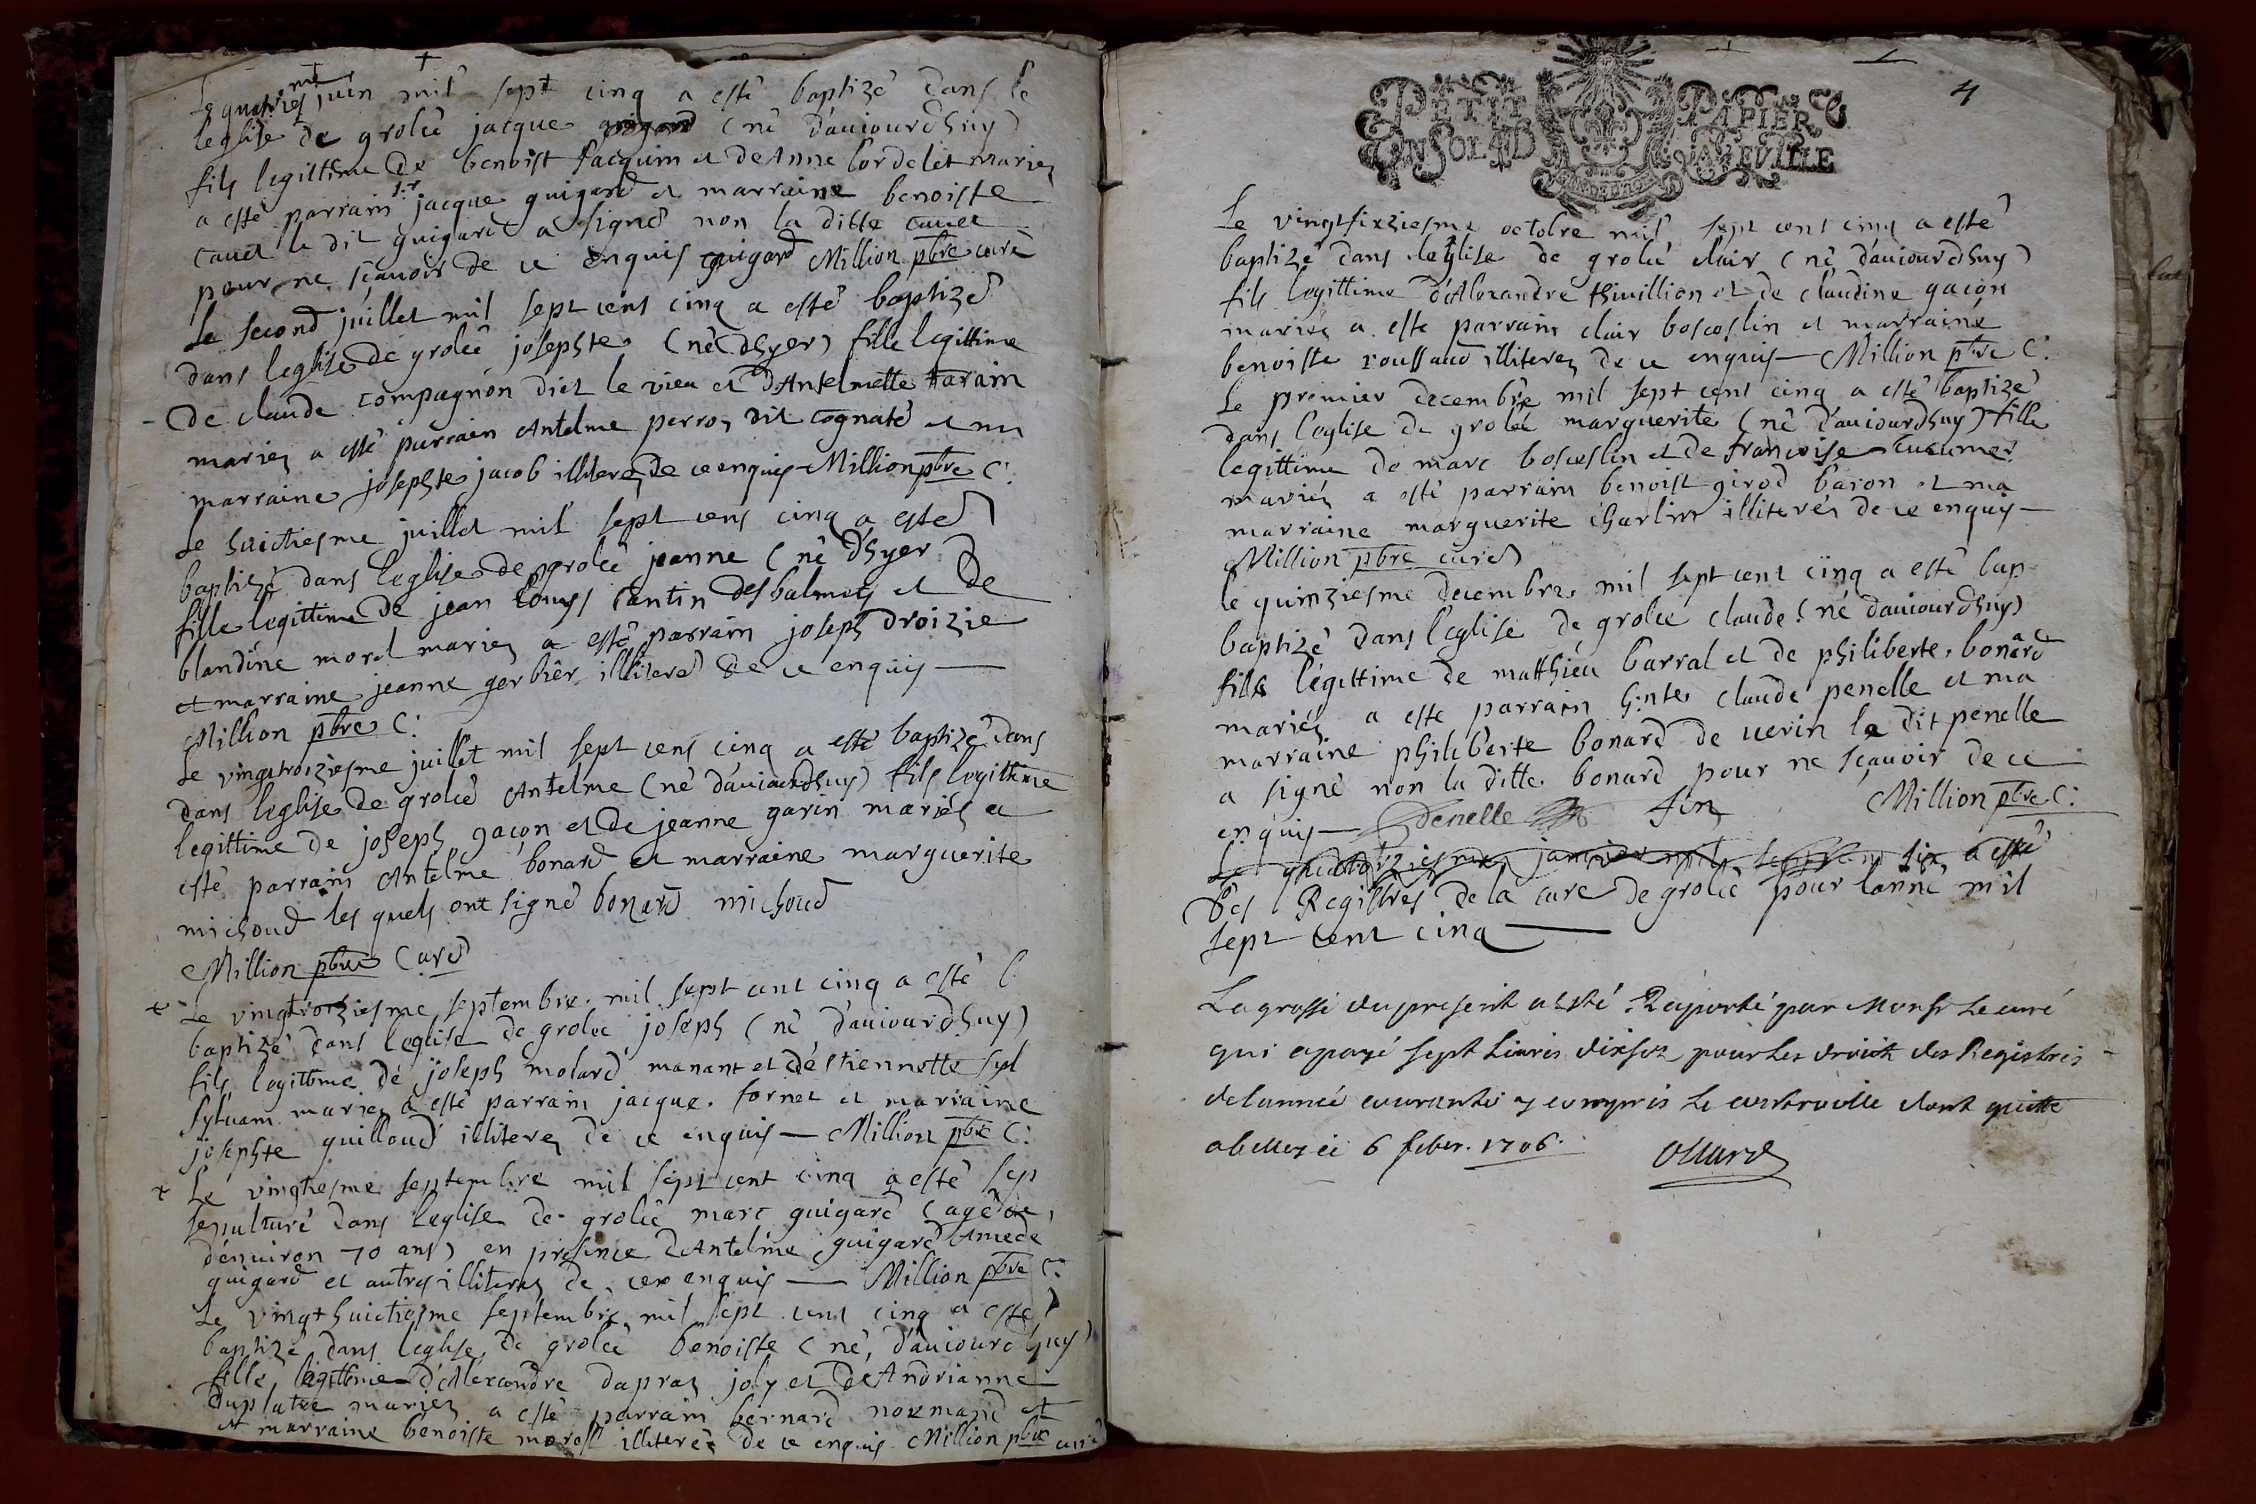 Le quatries me juin mil sept cinq a esté baptizé dans le
leglise de grolée jacque guigard (né d'auiourdhuy)
fils legittime de benoist Jacquin et de Anne Cordelet mariez
a esté parrain sr jacque guigard et marraine benoiste
Cauet le dit guigard a signé non la ditte Cauet
pour ne scauoir de ce enquis guigard Million pbre curé
Le second juillet mil sept cens cinq a esté baptizé
dans leglise de grolée josephte (né dhyer) fille legittime
de claude compagnon dict le vieu et d'Antelmette tarain
mariez a esté parrain Antelme perroz dit cognate et ma
marraine josephte jacob illiterez de ce enquis Million pbre C:
Le huictiesme juillet mil sept cens cinq a esté
baptizé dans leglise de grolée jeanne (né dhyer)
fille legittime de jean louys santin des balmetes et de
blandine morel mariez a esté parrain joseph Droizie
et marraine jeanne gerbier illiteré de ce enquis —
Million pbre C:
Le vingtroiziesme juillet mil sept cens cinq a esté baptizé dans
dans leglise de grolée Antelme (né d'auiourdhuy) fils legittime
legittime de joseph gaçon et de jeanne garin mariés a
esté parrain Antelme bonard et marraine marguerite
michoud les quels ont signé bonard michoud
Million pbre Curé
Le vingtroiziesme septembre mil sept cent cinq a esté b
baptizé dans leglise de grolée joseph (né d'auiourdhuy)
fils legittime de joseph molard manant et d'estiennette syl
syluain mariez a esté parrain jacque fornet et marraine
josephte guilloud illiterez de ce enquis — Million pbre C:
Le vingtiesme septembre mil sept cent cinq a esté sep
sepulturé dans leglise de grolée marc guigard (agé de
denuiron 70 ans) en presence d'Antelme guigard Amede
guigard et autres illiterez de ce enquis — Million pbre C:
Le vingthuictiesme septembre mil sept cens cinq a esté
baptizé dans leglise de grolée benoiste (né d'auiourdhuy)
fille legittime d'Alexandre dupraz joly et de Andrianne
duplatre mariez a esté parrain bernard normand et
et marraine benoiste morel illiterés de ce enquis Million pbre curé
4
PETIT PAPIER
UN SOL 4 D LA FEUILLE
Le vingtsixiesme octobre mil sept cens cinq a esté
baptizé dans leglise de grolée clair (né d'auiourdhuy)
fils legittime d'Alexandre thiuillion et de claudine gacon
mariés a esté parrain clair boscoslin et marraine
benoiste roussaud illiterez de ce enquis — Million pbre C:
Le premier decembre mil sept cent cinq a esté baptizé
dans leglise de grolée marguerite (né d'auiourdhuy) fille
legittime de marc boscoslin et de francoise
mariés a esté parrain benoist girod baron et ma
marraine marguerite charlin illiterés de ce enquis —
Million pbre curé
le quinziesme decembre mil sept cent cinq a esté bap
baptizé dans leglise de grolée claude (né d'auiourdhuy)
fils légittime de matthieu barral et de philiberte bonard
mariés a esté parrain claude penelle et ma
marraine philiberte bonard de uerin le dit penelle
a signé non la ditte bonard pour ne sçauoir de ce
enquis — Penelle fin Million pbre C:
Le quatorziesme januier mil sept cens six a esté
des Registres de la cure de grolée pour lanné mil
sept cent cinq —
La grosse du present a esté Raportée par Monsr Le curé
qui a payé sept Liures dixsols pour Les droicts des Registres
de lannée courante y compris Le controolle dont quitte
a belley ce 6 feber. 1706.